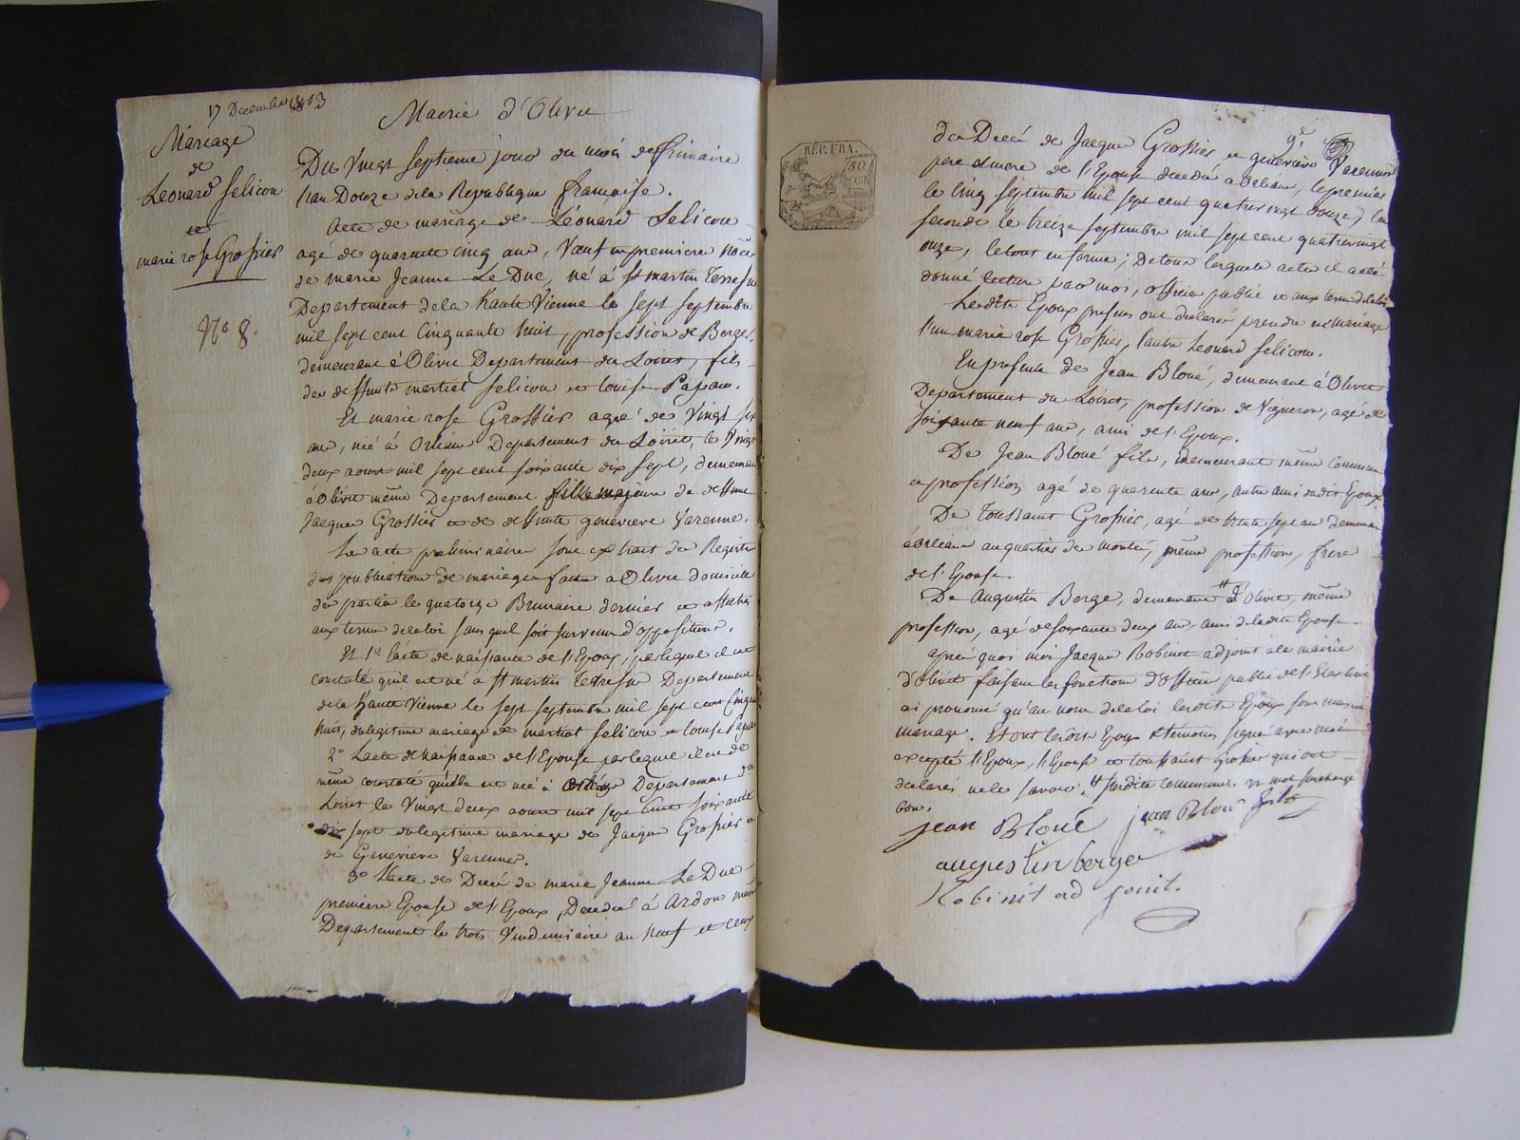 17 Decembre 1803
Mairie d'Olivet
Mariage
de
Leonard Felicou
et
marie rose Grossier
N.º 8.
Du Vingt Septieme jour du mois de frimaire
l'an Douze de la Republique française.
Acte de mariage de Léonard Felicou
agé de quarante cinq ans, Veuf en premiere Noce
de marie Jeanne Le Duc, né à St martin Terressu
Departement de la haute Vienne le Sept Septembre
mil sept cent Cinquante huit, profession de Berger,
demeurant à Olivet Departement du Loiret, fils
des deffunts martial felicou et louise Papau.
Et marie rose Grossier agée de Vingt six
ans, née à Orleans Departement du Loiret, le Vingt
deux aoust mil sept cent soixante dix sept, demeurant
à Olivet même Departement fille majeure de deffunt
Jacques Grossier et de deffunte genevieve Varenne.
Les actes preliminaires sont extrait des Registre
des publications de mariages faites a Olivet domicile
des parties le quatorze Brumaire dernier et affichés
aux termes de la loi sans quil soit survenu d'oppositions.
Et 1º l'acte de naissance de l'Epoux, par lequel il est
constaté quil est né a St martin terressu Departement
de la haute Vienne le sept septembre mil sept cent Cinquante
huit, du legitime mariage de martial felicou et louise Papau
2º L'acte de Naissance de l'Epouse par lequel il est de
même constaté quelle est née à Orleans Departement du
Loiret le Vingt deux aoust mil sept Cent soixante
dix sept du legitime mariage de Jacques Grossier et
de Genevieve Varenne.
3º l'acte de Decés de marie Jeanne Le Duc
premiere Epouse de l'Epoux, Decedée à Ardon même
Departement le trois Vindemiaire an Neuf et ceux
RÉP. FRA.
de Decés de Jacques Grossier et genevieve Varenne
pere et mere de l'Epouse decedés a Orleans, le premier
le cinq septembre mil sept cent quatre vingt douze, la
seconde le treize septembre mil sept cent quatrevingt
onze, le tout en forme; De tous lesquels actes il a été
donné lecture par moi, officier public et aux termes de la loi
Lesdits Epoux presens ont declaré prendre en mariage
l'un marie rose Grossier, l'autre Leonard felicou.
En presence de Jean Bloué, demeurant à Olivet
Departement du Loiret, profession de Vigneron, agé de
soixante neuf ans, ami de l'Epoux.
De Jean Bloué fils, demeurant même Commune
et profession, agé de quarante ans, autre ami dudit Epoux
De Toussaint Grossier, agé de trente sept ans demeurant
à Orleans au quartier de montée, même profession, frere
de l'Epouse.
De Augustin Berge, demeurant # à Olivet, même
profession, agé de soixante deux ans, ami de ladite Epouse
après quoi moi Jacque Robinet adjoint à la mairie
d'Olivet faisant les fonctions d'officier public de l'Etat Civil
ai prononcé qu'au nom de la loi lesdits Epoux sont unis en
mariage. Et ont lesdits Epoux et témoins signé avec moi
excepté l'Epoux, l'Epouse et toussaint Grossier qui ont
declarés ne le savoir. # susdite commune. mot surchargé
bon.
jean Bloué jean Bloué fils
augustin berge
Robinet adjoint.